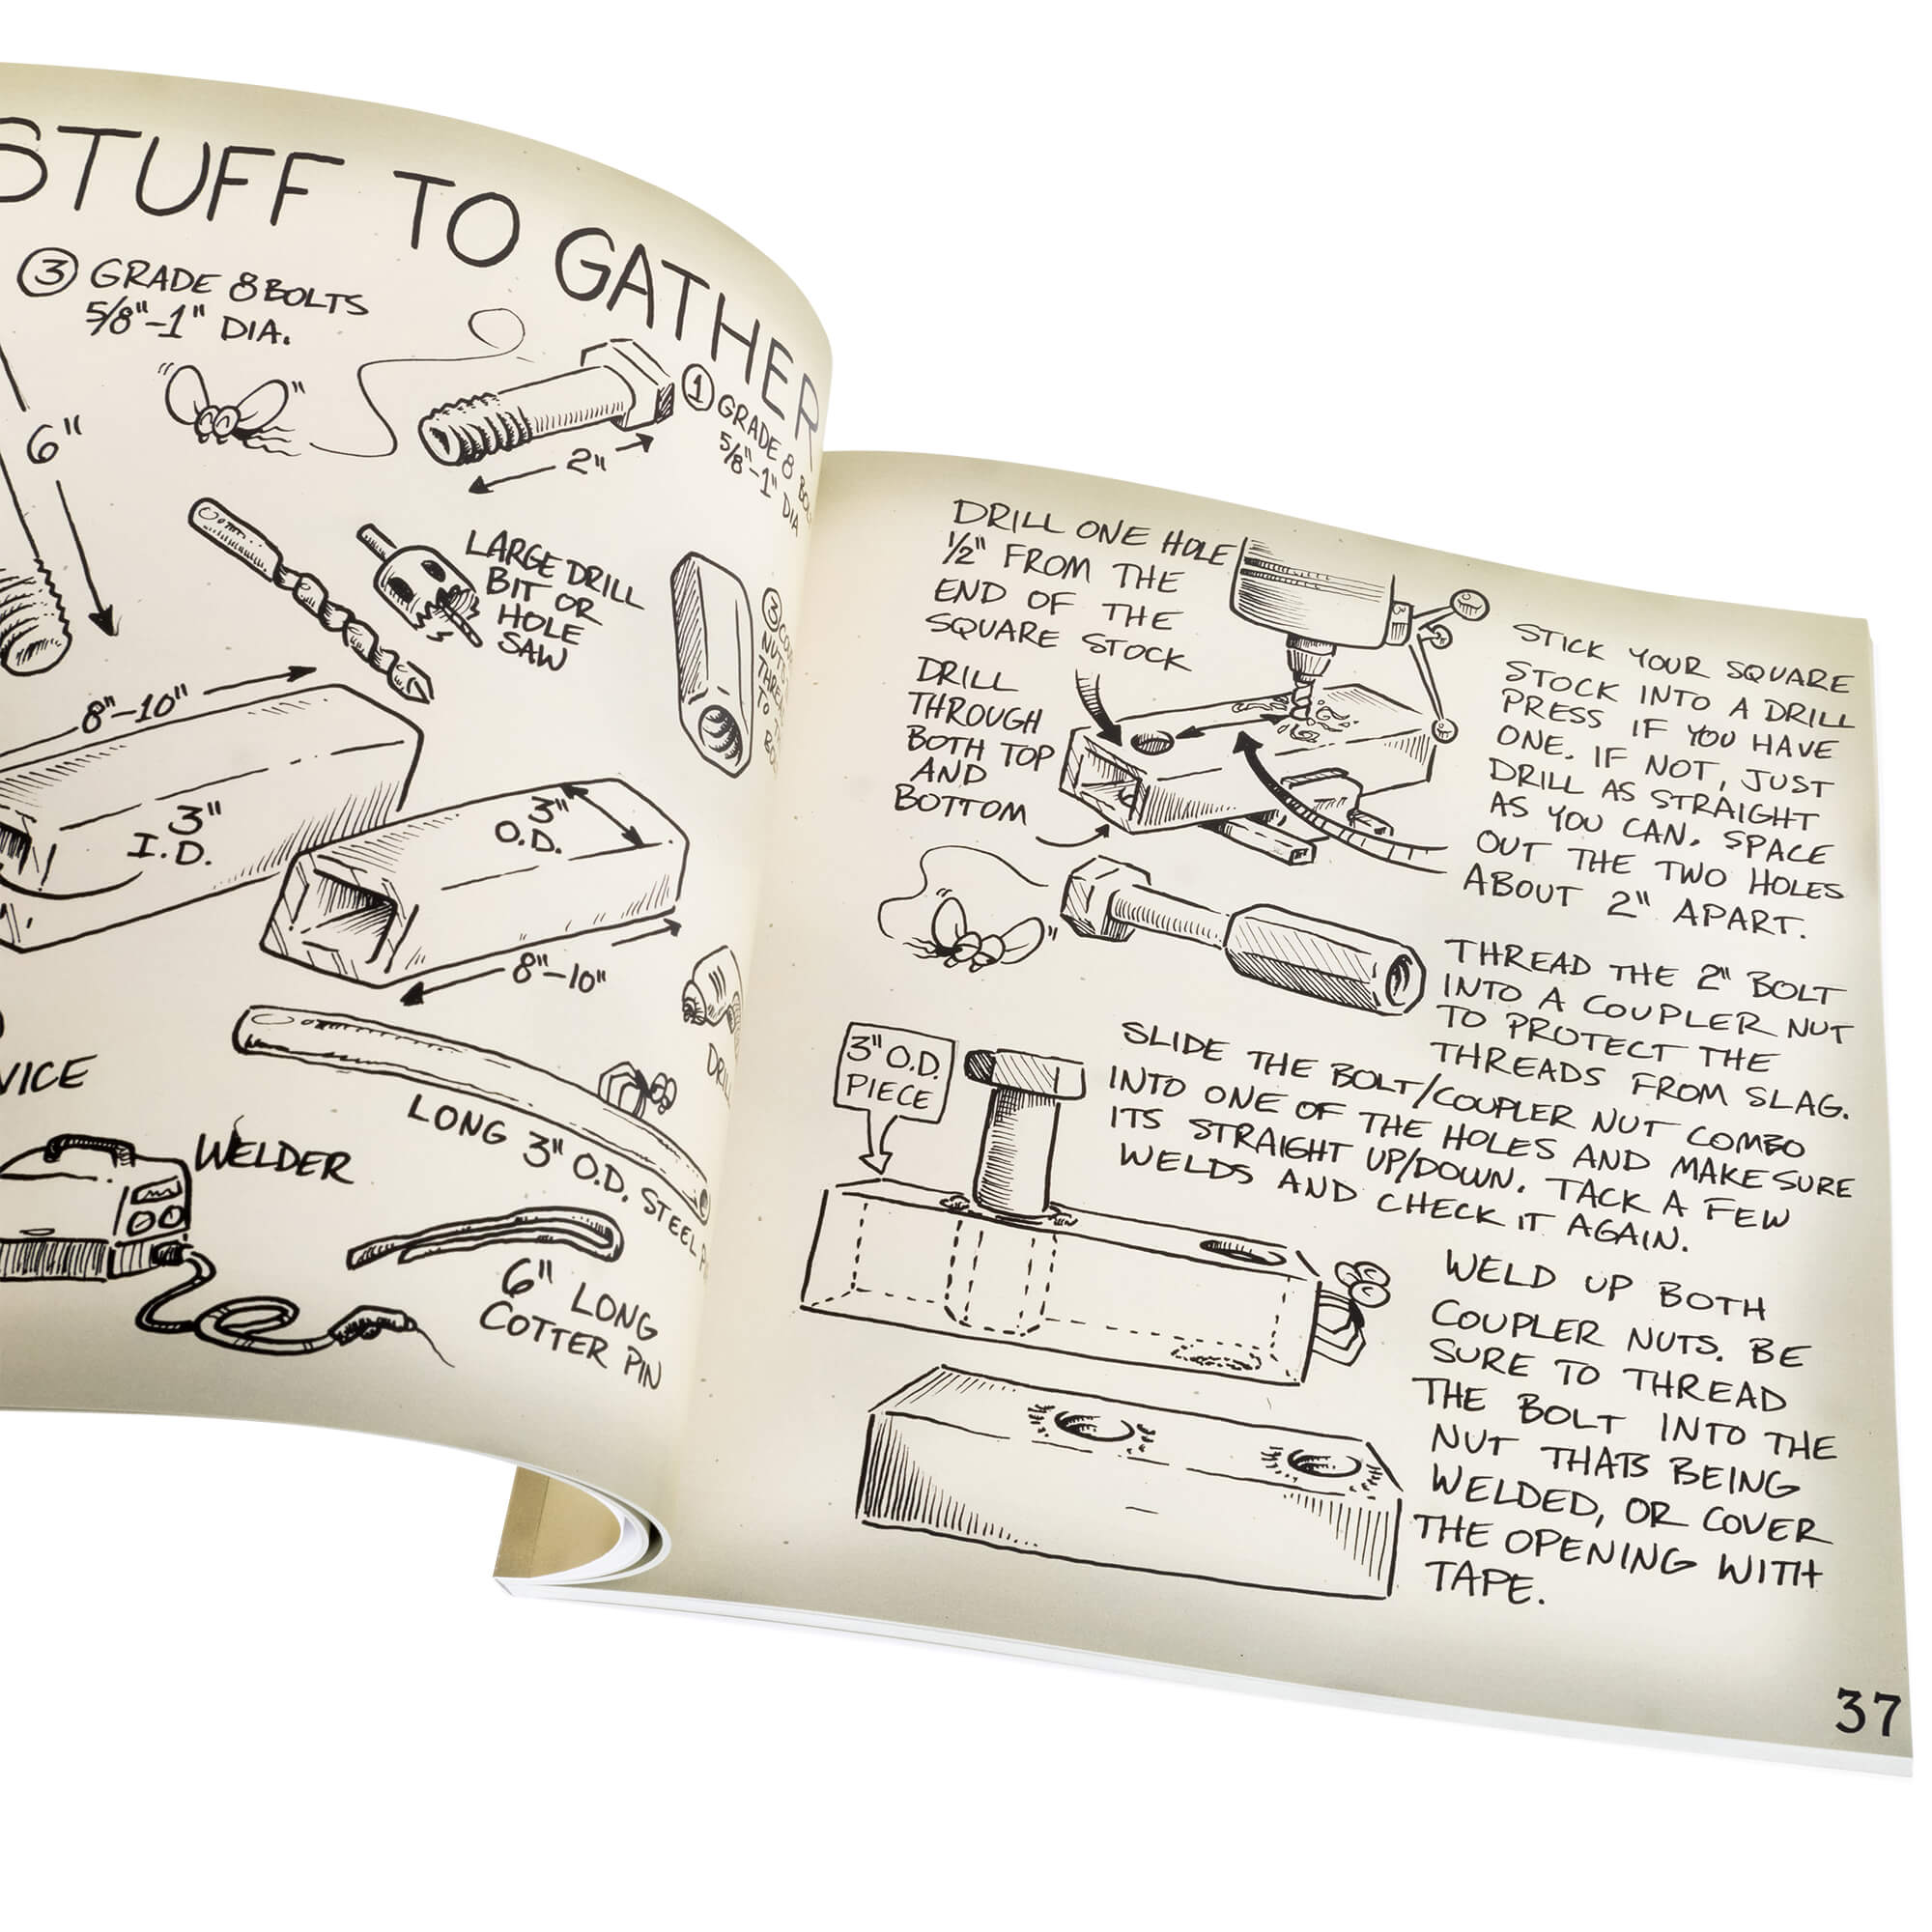 STUFF TO GATHER
3 GRADE 8 BOLTS
5/8"-1" DIA.
6"
2"
1 GRADE 8
5/8"-1" DIA
LARGE DRILL
BIT OR
HOLE
SAW
8"-10"
3"
I.D.
3"
O.D.
8"-10"
LONG 3" O.D. STEEL
WELDER
6" LONG
COTTER PIN
DRILL ONE HOLE
1/2" FROM THE
END OF THE
SQUARE STOCK
DRILL
THROUGH
BOTH TOP
AND
BOTTOM
STICK YOUR SQUARE
STOCK INTO A DRILL
PRESS IF YOU HAVE
ONE. IF NOT, JUST
DRILL AS STRAIGHT
AS YOU CAN. SPACE
OUT THE TWO HOLES
ABOUT 2" APART.
THREAD THE 2" BOLT
INTO A COUPLER NUT
TO PROTECT THE
THREADS FROM SLAG.
3" O.D.
PIECE
SLIDE THE BOLT/COUPLER NUT COMBO
INTO ONE OF THE HOLES AND MAKE SURE
ITS STRAIGHT UP/DOWN. TACK A FEW
WELDS AND CHECK IT AGAIN.
WELD UP BOTH
COUPLER NUTS. BE
SURE TO THREAD
THE BOLT INTO THE
NUT THATS BEING
WELDED, OR COVER
THE OPENING WITH
TAPE.
37